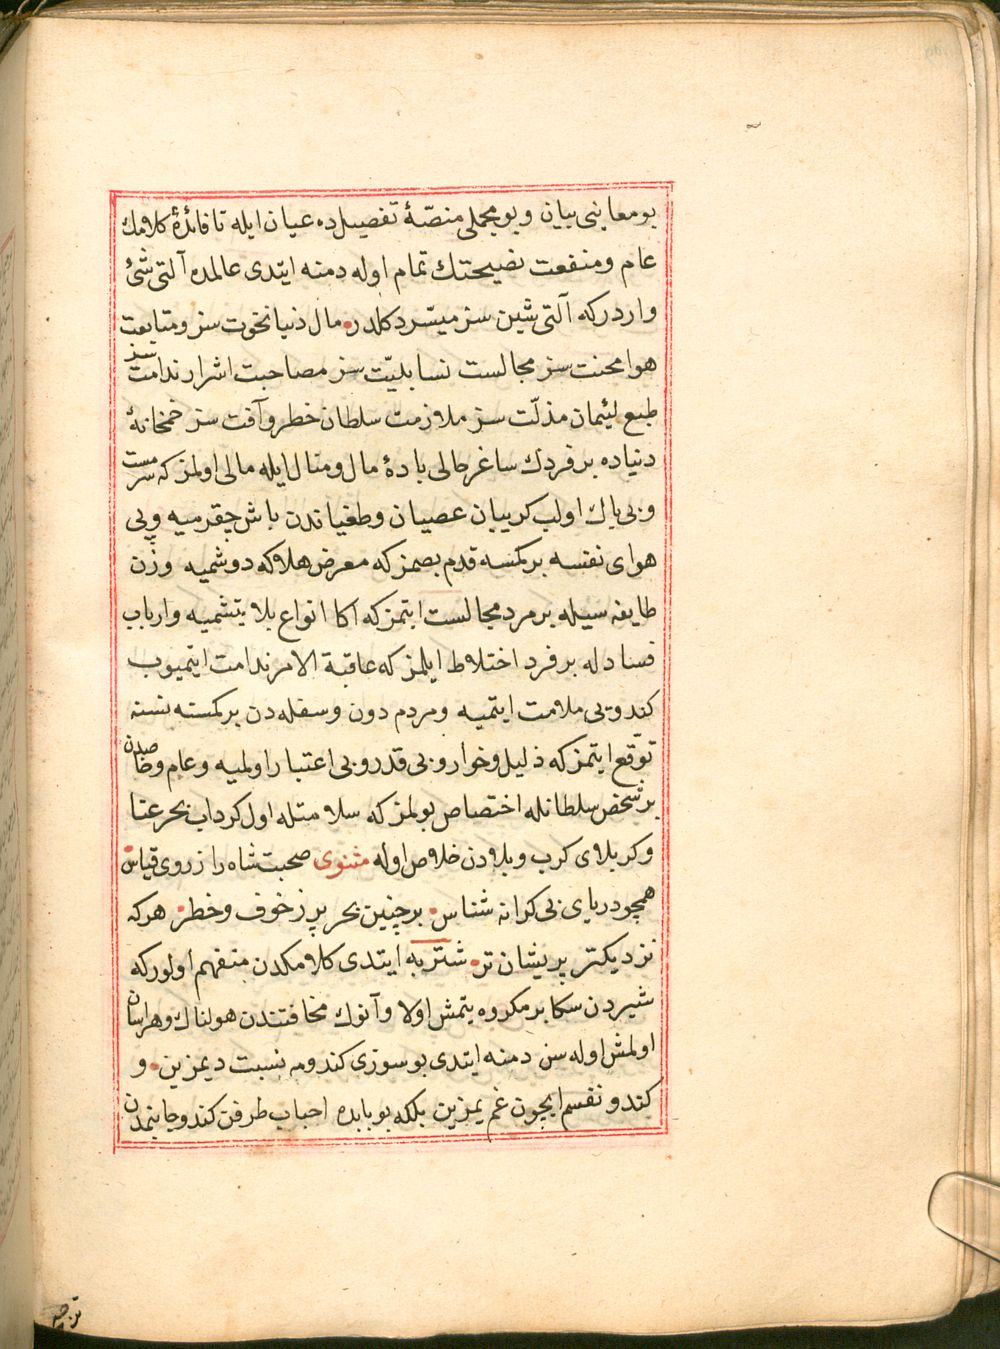 بو معاینی بیان و بو مجملی منصّهٔ تفصیلده عیان ایله تا فائدهٔ کلامك
عام و منفعت نصیحتك تمام اوله دمنه ایتدی عالمده آلتی شیٔ
واردرکه آلتی شین سز میسّر دکلدر مال دنیا نخوت سز و متابعت
هوا محنت سز مجالست نسا بلیّت سز مصاحبت اشرار ندامت سز
طبع لئیمان مذلّت سز ملازمت سلطان خطر و آفت سز خمخانهٔ
دنیاده بر فردك ساغر حالی بادهٔ مال و منال ایله مالی اولمز که سرمست
و بی باك اولب کریبان عصیان و طغیاندن باش چقرمیه و پی
هوای نفسه بر کمسه قدم بصمز که معرض هلاکه دوشمیه و زن
طایفه سیله بر مرد مجالست ایتمز که اکا انواع بلا یتشمیه و ارباب
فساد له بر فرد اختلاط ایلمز که عاقبة الامر ندامت ایتمیوب
کندویی ملامت ایتمیه و مردم دون و سفله دن بر کمسته نسنه
توقّع ایتمز که ذلیل و خوار و بی قدر و بی اعتبار اولمیه و عام و خاصدن
بر شخص سلطانله اختصاص بولمز که سلامتله اول کرداب بحر عنا
و کربلای کرب و بلادن خلاص اوله مثنوی صحبت شاه را ز روی قیاس
همچو دریای بی کرانه شناس بر چنین بحر پر ز خوف و خطر هر که
نزدیکتر پریشان تر شتربه ایتدی کلامکدن منفهم اولور که
شیردن سکا بر مکروه یتمش اولا و آنوك مخافتندن هولناك و هراسان
اولمش اوله سن دمنه ایتدی بو سوزی کندومه نسبت دیمزین و
کندو نفسم ایچون غم یمزین بلکه بو بابده احباب طرفن کندو جانبمدن